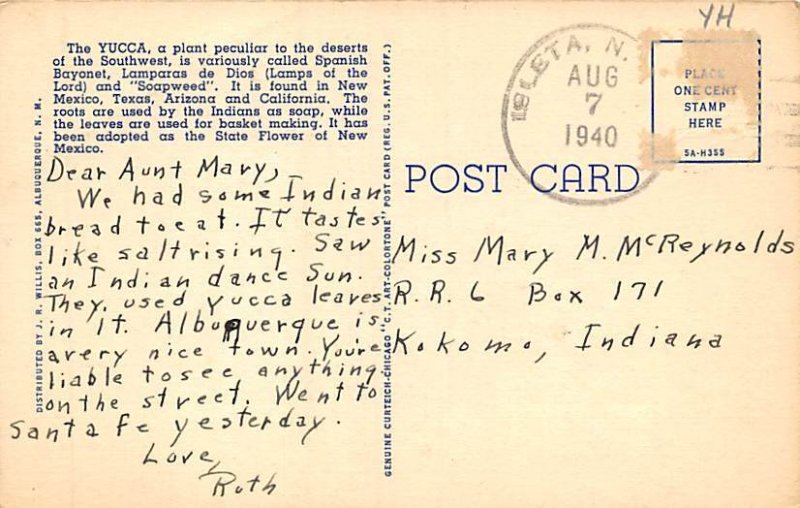 YH
The YUCCA, a plant peculiar to the deserts
of the Southwest, is variously called Spanish
Bayonet, Lamparas de Dios (Lamps of the
Lord) and "Soapweed". It is found in New
Mexico, Texas, Arizona and California. The
roots are used by the Indians as soap, while
the leaves are used for basket making. It has
been adopted as the State Flower of New
Mexico.
Dear Aunt Mary,
We had some Indian
bread to eat. It tastes
like saltrising. Saw
an Indian dance Sun.
They used yucca leaves
in it. Albuquerque is
a very nice town. You're
liable to see anything
on the street. Went to
Santa Fe yesterday.
Love,
Ruth
DISTRIBUTED BY J. R. WILLIS, BOX 665, ALBUQUERQUE, N. M.
GENUINE CURTEICH-CHICAGO "C.T. ART-COLORTONE" POST CARD (REG. U.S. PAT. OFF.)
ISLETA, N.
AUG
7
1940
PLACE
ONE CENT
STAMP
HERE
5A-H355
POST CARD
Miss Mary M. McReynolds
R.R. 6 Box 171
Kokomo, Indiana